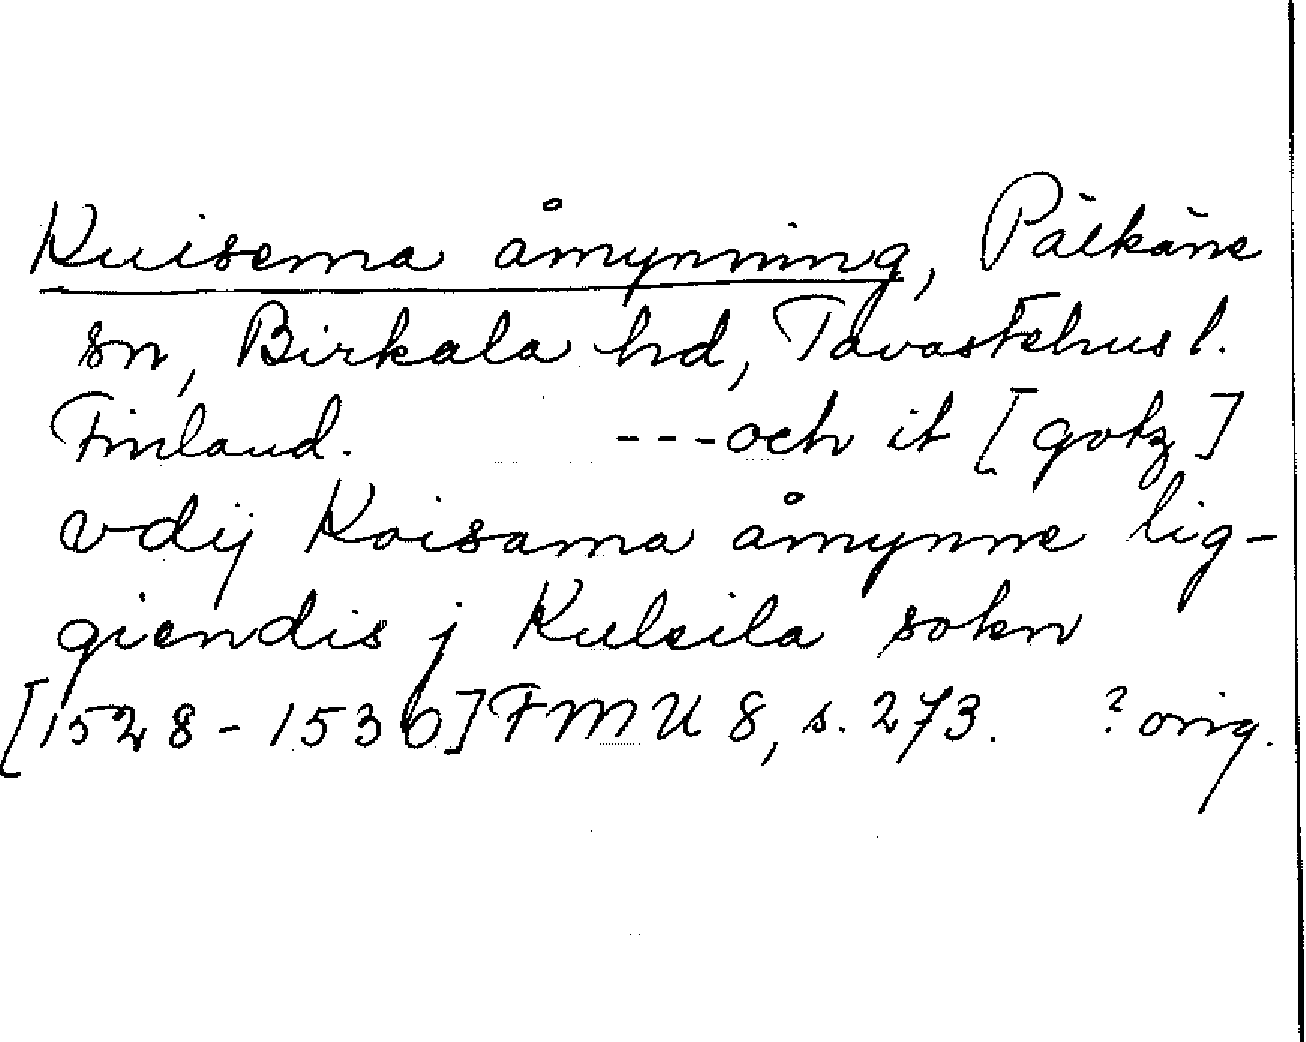 Kuisema åmynning, Pälkäne
sn, Birkala hd, Tavastehus l.
Finland. ---och it [gotz]
vdij Koisama åmynne lig-
giendis j Kulsila sokn
[1528-1536] FMU 8, s. 273. ? orig.